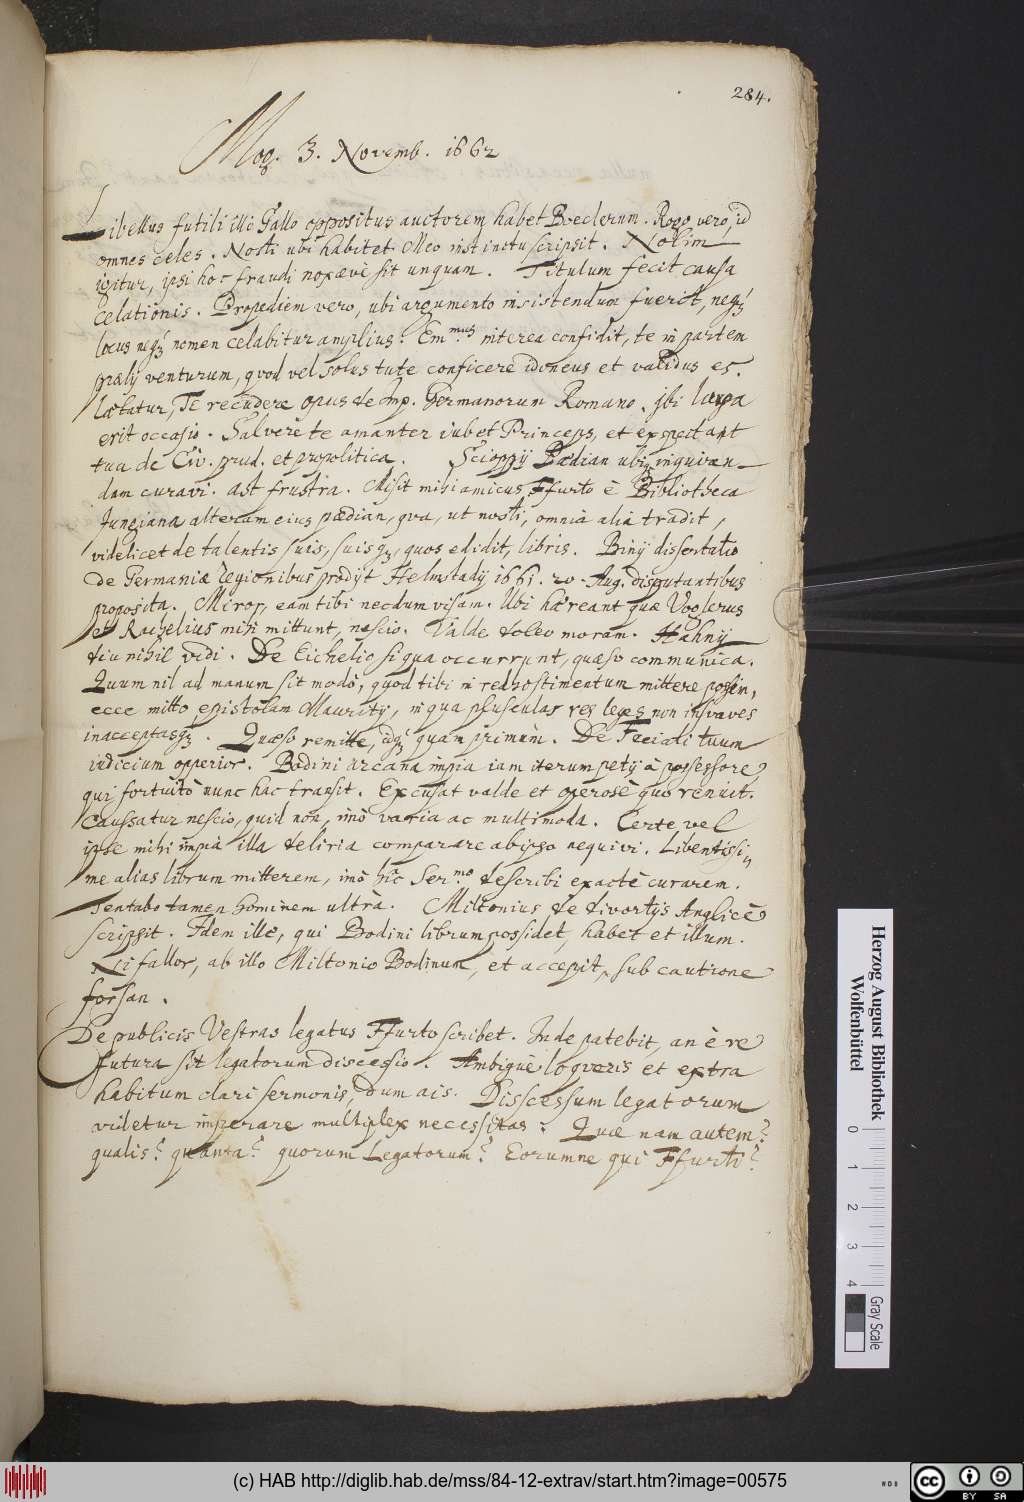 284.
Mog. 3. Novemb. 1662
Libellus futili illi Gallo oppositus auctorem habet Boeclerum. Rogo vero, id
omnes celes. Nosti ubi habitet. Meo instinctu scripsit. Nolim
igitur, ipsi hoc fraudi noxaeve sit unquam. Titulum fecit causa
celationis. Propediem vero, ubi argumento insistendum fuerit, neq;
locus neq; nomen celabitur amplius. Em.mus interea confidit, te in partem
praelij venturum, quod vel solus tute conficere idoneus et validus es.
Laetatur, Te recudere opus de Imp. Germanorum Romano. Ibi larga
erit occasio. Salvere te amanter iubet Princeps, et exspectant
tua de Civ. prud. et propolitica. Scioppij Paedian ubiq; inquiren-
dam curavi. Ast frustra. Misit mihi amicus Ffurto è Bibliotheca
Jungiana alteram eius paedian, qua, ut nosti, omnia alia tradit,
videlicet de talentis suis, suisq;, quos edidit, libris. Binij dissertatio
de Germaniae legionibus prodijt Helmstadij 1661. 20. Aug. disputantibus
proposita. Miror, eam tibi necdum visam. Ubi haereant quae Voglerus
et Rachelius mihi mittunt, nescio. Valde doleo moram. Hahnij
diu nihil vidi. De Eichelio si qua occurrunt, quaeso communica.
Quum nil ad manum sit modò, quod tibi in redhostimentum mittere possim,
ecce mitto epistolam Mauritij, in qua pluscular res leges non insuaves
inacceptasq;. Quaeso remitte, idq; quam primùm. De Feciali tuum
iudicium opperior. Bodini arcana impia iam iterum petij à possessore,
qui fortuitò nunc hac transit. Excusat valde et operosè quo renuit.
Caussatur nescio, quid non, imò varia ac multimoda. Certe vel
ipse mihi impia illa deliria comparare ab ipso nequivi. Libentissi-
me alias librum mitterem, imò hîc Ser.mo describi exactè curarem.
Tentabo tamen hominem ultrà. Miltonius de divortijs Anglicè
scripsit. Idem ille, qui Bodini librum possidet, habet et illum.
Ni fallor, ab illo Miltonio Bodinum, et accepit, sub cautione
forsan.
De publicis Vestras legatus Ffurto scribet. Inde patebit, an è re
futura sit legatorum discessio. Ambiguè loqueris et extra
habitum clari sermonis, dum ais. Discessum legatorum
videtur imperare multiplex necessitas. Quae nam autem?
qualis? quanta? quorum Legatorum? Eorumne qui Ffurti?
Herzog August Bibliothek
Wolfenbüttel
0 1 2 3 4
Gray Scale
(c) HAB http://diglib.hab.de/mss/84-12-extrav/start.htm?image=00575
cc BY SA